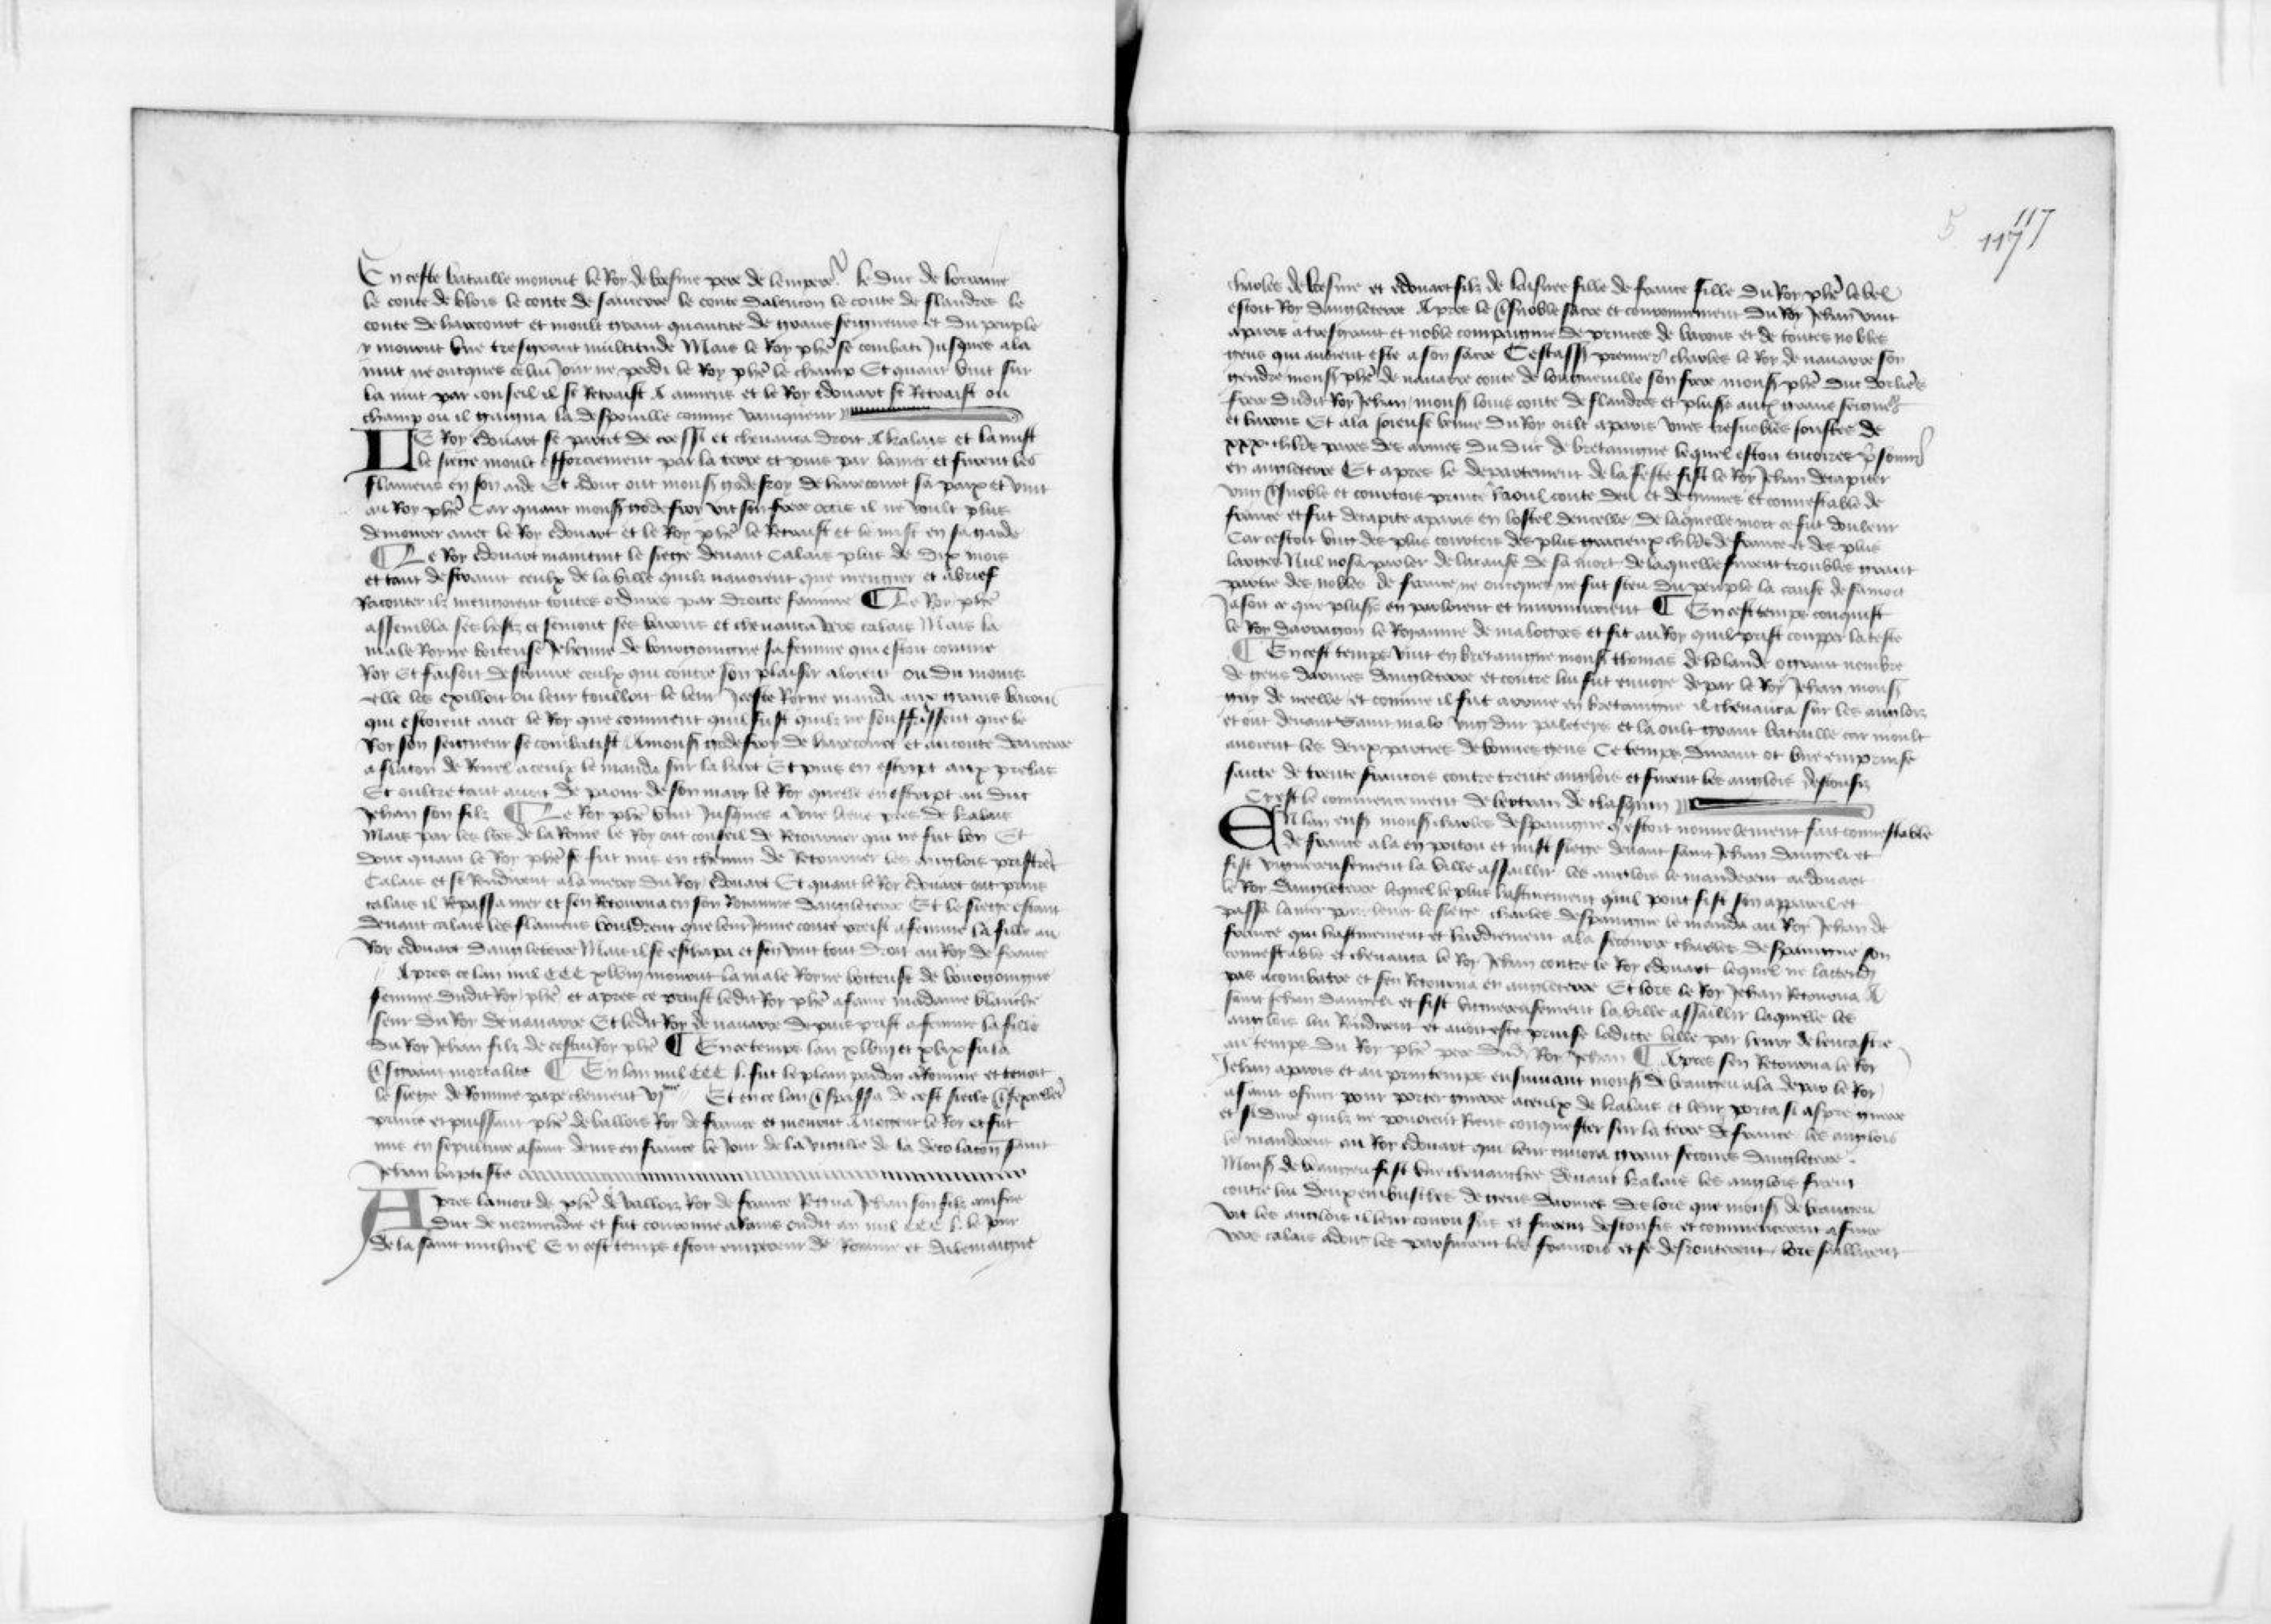 En ceste bataille mourut le Roy de boesme pere de lempere^r le duc de lorraine
le conte de blois le conte de sancerre le conte dalencon le conte de flandres le
conte de harecourt et moult grant quantite de grans seigneurs et du peuple
y mourut vne tresgrant multitude Mais le Roy phē se combati Jusques a la
nuit ne oncques celui Jour ne perdi le Roy phē le champ Et quant vint sur
la nuit par conseil il se Retraist A amiens et le Roy edouart se Retraist ou
champ ou il gaigna la despouille comme vainqueur
LE Roy edouart se partit de cressi et cheuaucha droit A kalais et la mist
le siege moult efforciement par la terre et puis par la mer et furent les
flamens en son aide Et adonc out mons godefroy de harecourt sa paix et vint
au Roy phē Car quant mons godefroy vit son frere occis il ne voult plus
demourer auec le Roy edouart et le Roy phē le Retraist et le mist en sa garde
¶ Le Roy edouart maintint le siege deuant Calais plus de dix mois
et tant destraint ceulx de la ville quilz nauoient que mengier et a brief
Raconter ilz mengoient toutes ordures par droicte famine ¶ Le Roy phē
assembla ses hostz et semont ses barons et cheuaucha vers calais Mais la
male Royne boiteuse Jehenne de bourgoingne sa femme qui estoit comme
Roy Et faisoit destruire ceulx qui contre son plaisir aloient ou du moins
elle les exilloit ou leur toulloit le leur Iceste Royne manda aux grans barons
qui estoient auec le Roy que comment quil fust quilz ne souffrissent que le
Roy son seigneur se combatist A mons godefroy de harecourt et au conte
a flacon de Reuel a ceulx le manda sur la hart Et puis en escript aux prelas
Et oultre tant auoit de paour de son mary le Roy quelle en escript au duc
Jehan son filz ¶ Le Roy phē vint Jusques a vne lieue pres de kalais
Mais par les lres de la Royne le Roy out conseil de Retourner qui ne fut bon Et
donc quant le Roy phē se fut mis en chemin de Retourner les anglois pristrēt
Calais et se Rendirent a la mercy du Roy edouart Et quant le Roy edouart out prins
calais il Repassa mer et sen Retourna en son Royaume dangleterre Et le siege estant
deuant calais les flamens vouldrent que leur Jeune conte preist a femme la fille au
Roy edouart dangleterre Mais il se eschapa et sen vint tout droit au Roy de france
Apres ce lan mil CCC xlviij mourut la male Royne boiteuse de bourgoingne
femme dudit Roy phē et apres ce print ledit Roy phē a fame madame blanche
seur du Roy de nauarre Et ledit Roy de nauarre depuis prist a femme la fille
du Roy Jehan filz de cestui Roy phē ¶ En ce temps lan xlviij et xlix fu la
tsgrant mortalite ¶ En lan mil CCC l. fut le plain pardon a Romme et tenoit
le siege de Romme pape clement vj^me Et en ce lan tspassa de cest siecle
prince et puissant phē de vallois Roy de france et mourut A nogent le Roy et fut
mis en sepulture a saint denis en france le Jour de la vigille de la decolacōn saint
Jehan baptiste
Apres la mort de phē de vallois Roy de france Regna Jehan son filz ainsne
duc de normendie et fut couronne a Rains oudit an mil CCC l. le Jour
de la saint michiel En cest temps estoit empereur de Romme et dalemaigne
117
117
charles de boesme et edouart filz de lainsnee fille de france fille du Roy phē le bel
estoit Roy dangleterre Apres le tsnoble sacre et couronnement du Roy Jehan vint
a paris a tresgrant et noble compaignie de princes de barons et de toutes nobles
gens qui auoient este a son sacre Cestassr premierͬ charles le Roy de nauarre son
gendre mons phē de nauarre conte de longueuille son frere mons phē duc dorliēs
frere dudit Roy Jehan mons loys conte de flandres et plusrs autrs grans seigneᷓ
et barons Et a la Joieuse venue du Roy oult a paris vnes tresnobles Joustes de
xxx chlrs pares des armes du duc de bretaingne lequel estoit encores p̄sonnᷓ
en angleterre Et apres le departement de la feste fist le Roy Jehan decapiter
vng tsnoble et courtois prince Raoul conte deu et de guines et connestable de
france et fut decapite a paris en lostel de neelle de laquelle mort ce fut douleur
Car cestoit vng des plus courtois des plus gracieux chlrs de france et des plus
larges Nul nosa parler de la cause de sa mort de laquelle furent troubles grant
partie des nobles de france ne oncques ne fut sceu du peuple la cause de sa mort
Jasoit ce que plusrs en parloient et murmuroient ¶ En cest temps conquist
le Roy darragon le Royaume de malogres et fit au Roy quil prist coupper la teste
¶ En cest temps vint en bretaingne mons thomas de holande o grant nombre
de gens darmes dangleterre et contre lui fut enuoye de par le Roy Jehan mons
guy de neelle et comme il fut arriue en bretaingne il cheuaucha sur les anglois
et out deuant saint malo vng dur paleteys et la oult grant bataille car moult
auoient les deux parties de bonnes gens Ce temps durant ot vne emprinse
faicte de trente francois contre trente anglois et furent les anglois desconfiz
Cy est le commencement de bertran de claiquin
EN lan ensͭ mons charles despaingne q̄ estoit nouuelement fait connestable
de france ala en poitou et mist siege deuant saint Jehan dangeli et
fist vigueureusement la ville assaillir les anglois le manderent a edouart
le Roy dangleterre lequel le plus hastiuement quil pout fist son appareil et
passa la mer pour leuer le siege charles despaingne le manda au Roy Jehan de
france qui hastiuement et hardiement ala secourre charles despaingne son
connestable et cheuaucha le Roy Jehan contre le Roy edouart lequel ne lattendi
pas a combatre et sen Retourna en angleterre Et lors le Roy Jehan Retourna A
saint Jehan dangeli et fist vigueureusement la ville assaillir laquelle les
anglois lui Rendirent et auoit este prinse ladicte ville par henry de lencastre
au temps du Roy phē pere dudͭ Roy Jehan ¶ Apres sen Retourna le Roy
Jehan a paris et au printemps ensuiuant mons de beaugeu ala de par le Roy
a saint omer pour porter guerre a ceulx de kalais et leur porta si aspre guerre
et si dure quilz ne pouoient Riens conquester sur la terre de france les anglois
le manderent au Roy edouart qui leur enuoia grant secours dangleterre
Mons de beaugeu fist vne cheuauchee deuant kalais les anglois firent
contre lui deux embusches de gens darmes des lors que mons de beaugeu
vit les anglois il leur couru sus et furent desconfis et commencerent a fuire
vers calais adonc les parsuirent les francois et se desrouterent lors saillirent